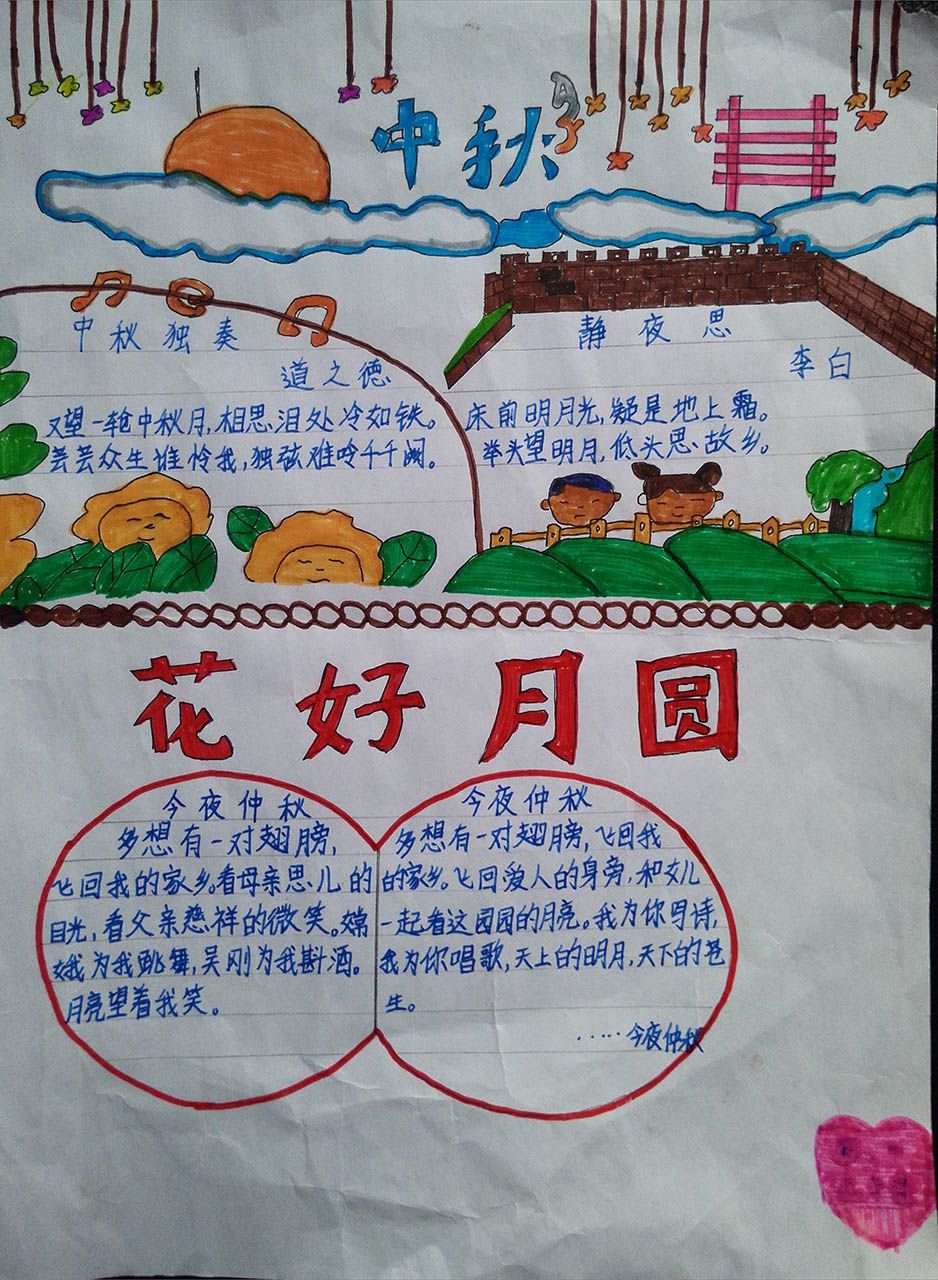 中秋
中秋独奏
道之德
又望一轮中秋月,相思泪处冷如铁。
芸芸众生谁怜我,独弦难呤千千阙。
静夜思
李白
床前明月光,疑是地上霜。
举头望明月,低头思故乡。
花好月圆
今夜仲秋
多想有一对翅膀,
飞回我的家乡。看母亲思儿的
目光,看父亲慈祥的微笑。嫦
娥为我跳舞,吴刚为我斟酒。
月亮望着我笑。
今夜仲秋
多想有一对翅膀,飞回我
的家乡。飞回爱人的身旁,和女儿
一起看这园园的月亮。我为你写诗,
我为你唱歌,天上的明月,天下的苍
生。
……今夜仲秋